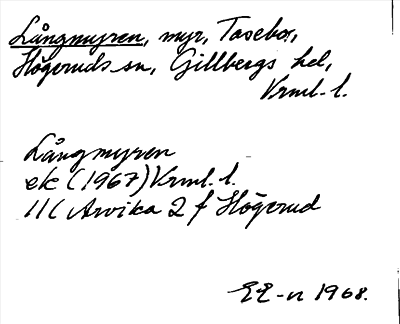 Långmyren, myr, Tasebol,
Högeruds sn, Gillbergs hd,
Vrml. l.
Långmyren
ek (1967) Vrml. l.
11C Arvika 2 f Högerud
1968.